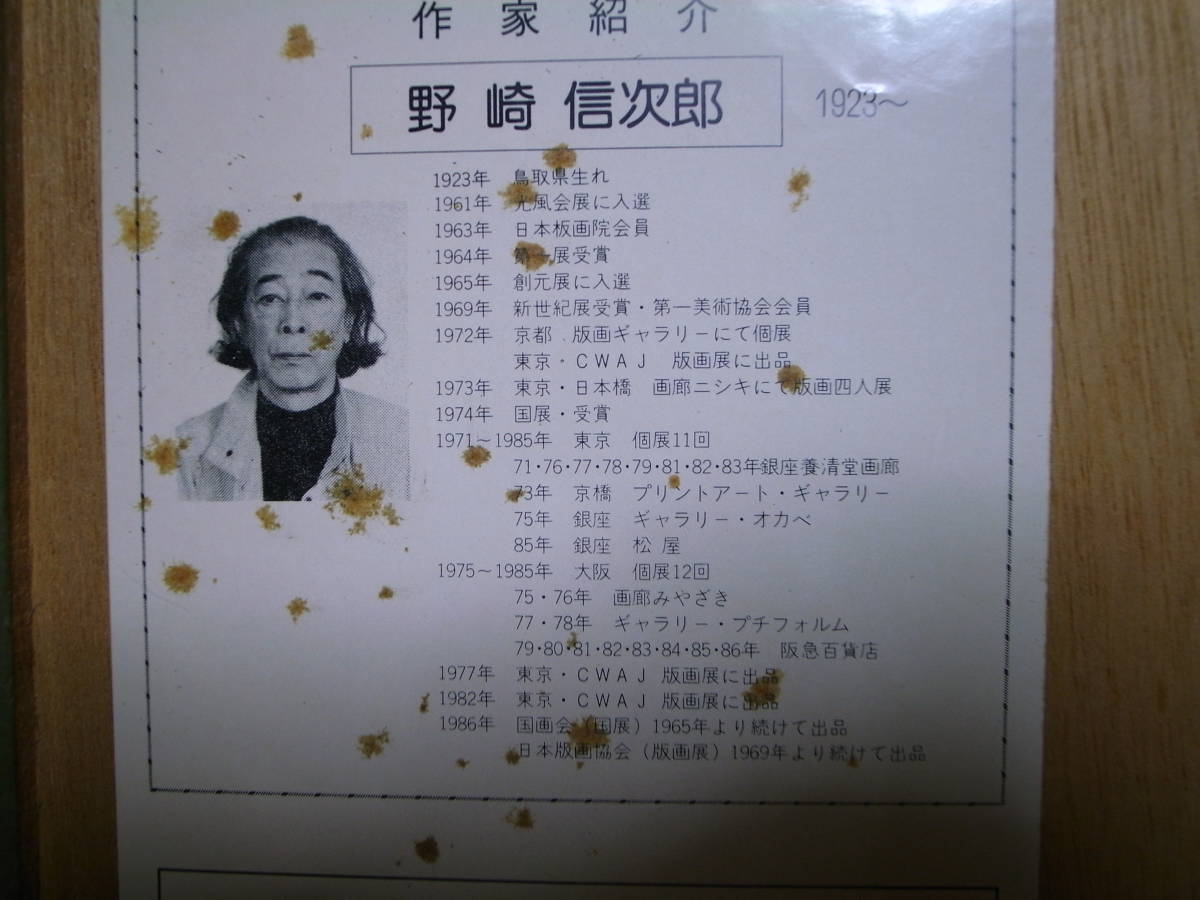 作家紹介
野崎 信次郎 1923～
1923年 鳥取県生れ
1961年 光風会展に入選
1963年 日本板画院会員
1964年 第一展受賞
1965年 創元展に入選
1969年 新世紀展受賞・第一美術協会会員
1972年 京都 版画ギャラリーにて個展
東京・CWAJ 版画展に出品
1973年 東京・日本橋 画廊ニシキにて版画四人展
1974年 国展・受賞
1971～1985年 東京 個展11回
71・76・77・78・79・81・82・83年銀座養清堂画廊
73年 京橋 プリントアート・ギャラリー
75年 銀座 ギャラリー・オカベ
85年 銀座 松屋
1975～1985年 大阪 個展12回
75・76年 画廊みやざき
77・78年 ギャラリー・プチフォルム
79・80・81・82・83・84・85・86年 阪急百貨店
1977年 東京・CWAJ 版画展に出品
1982年 東京・CWAJ 版画展に出品
1986年 国画会（国展）1965年より続けて出品
日本版画協会（版画展）1969年より続けて出品